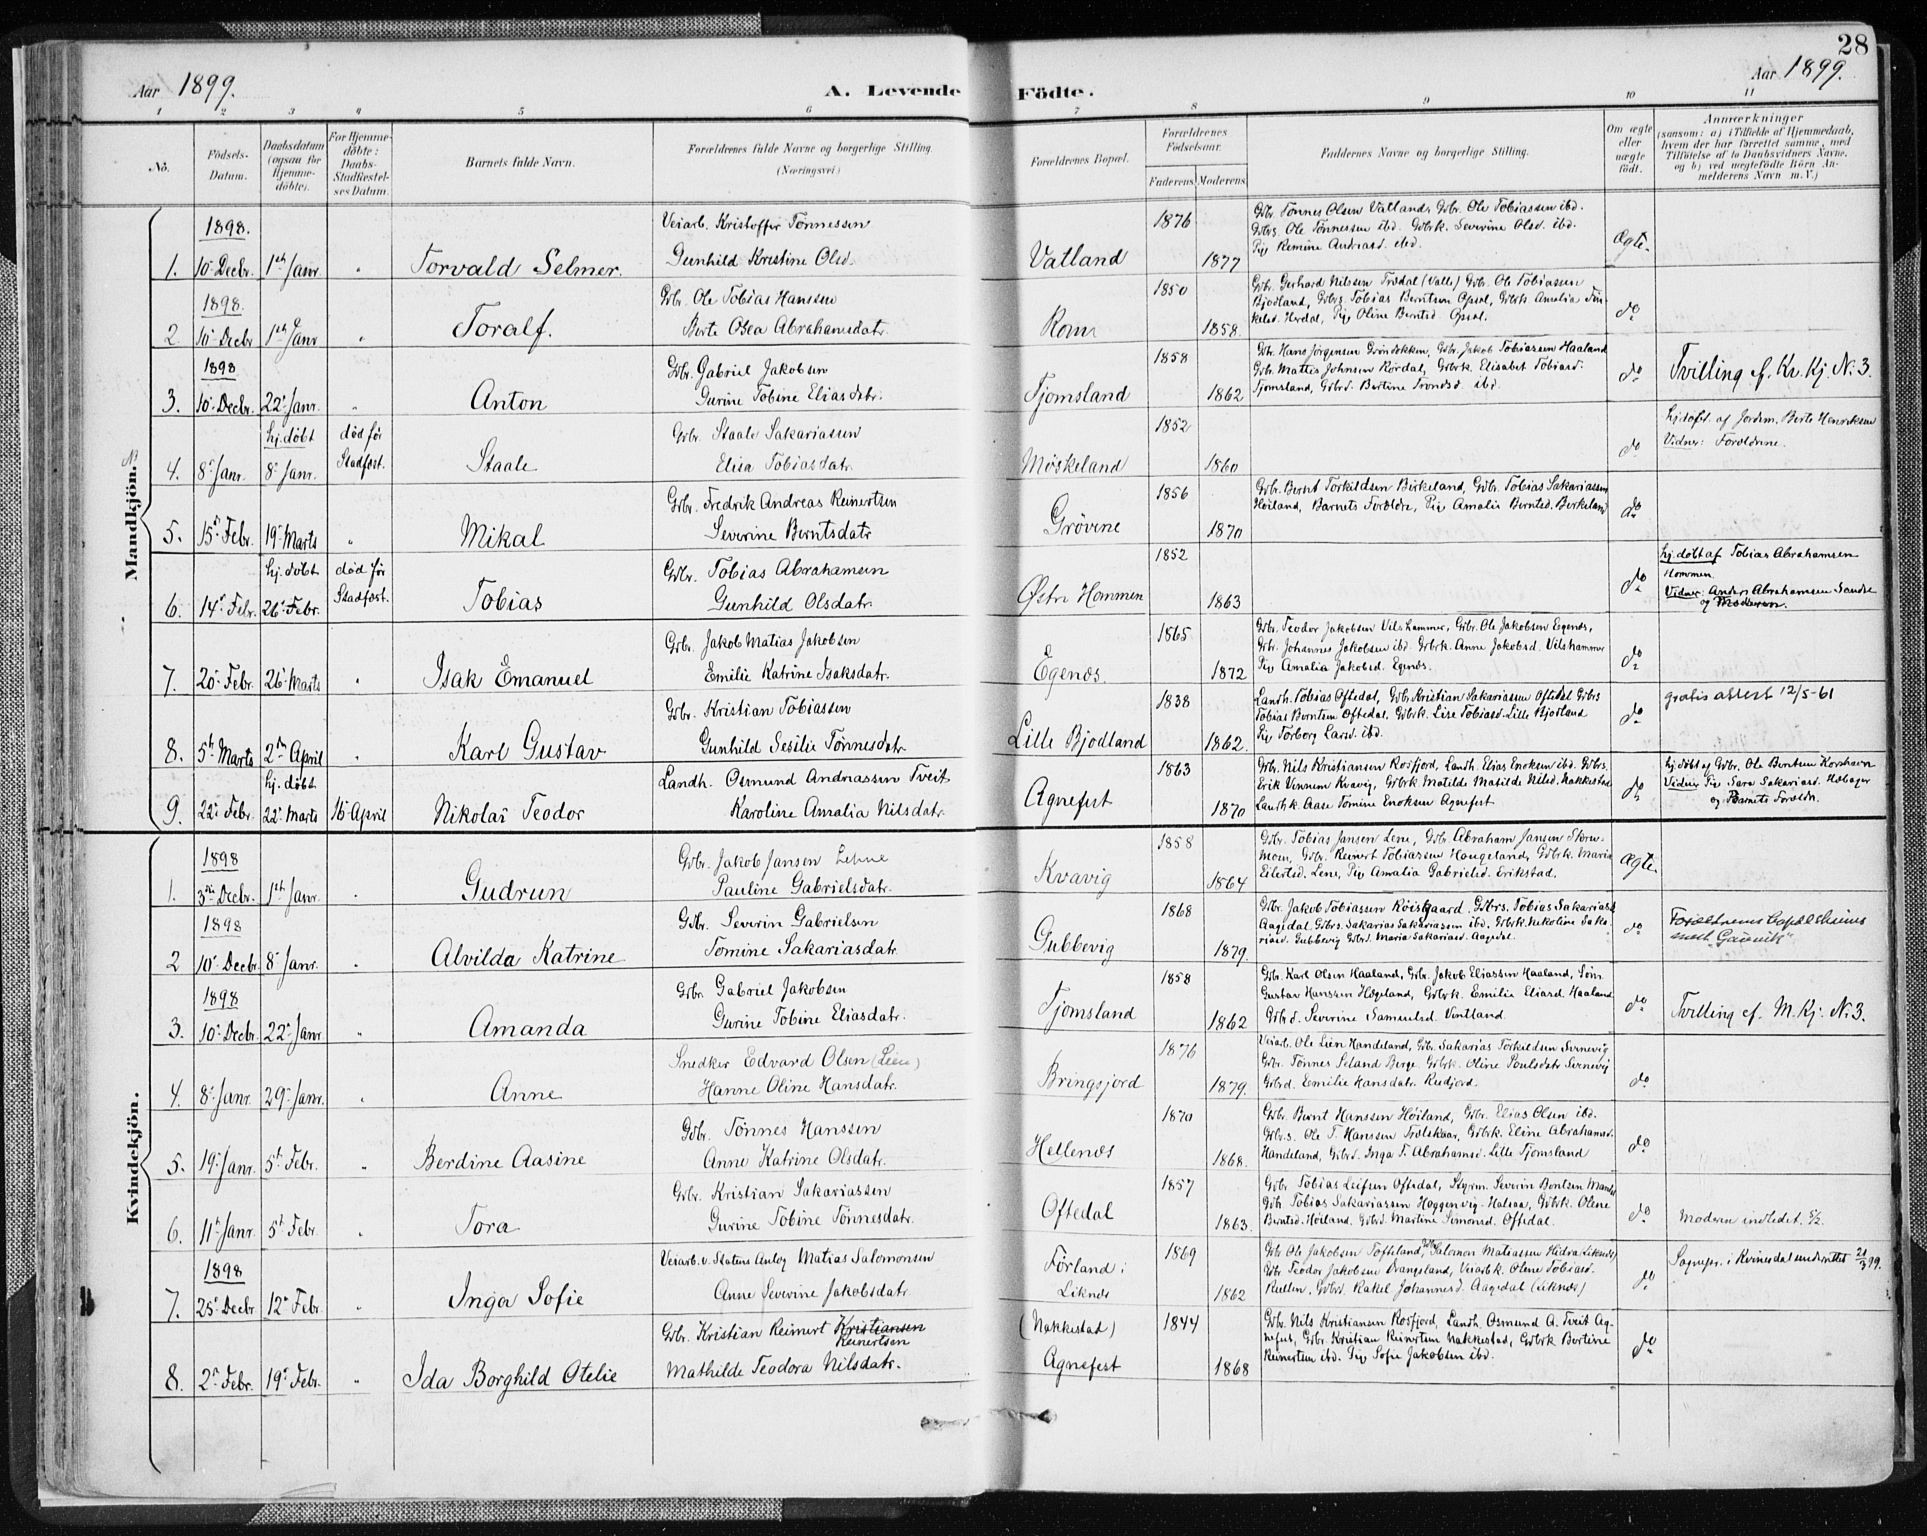 28
Aar 1899. A. Levende Födte. Aar 1899.
1 2 3 4 5 6 7 8 9 10 11
No.
Födsels-
Datum.
Daabsdatum
(ogsaa for
Hjemme-
döbte).
For Hjemme-
döbte:
Daabs-
Stadfæstel-
ses Datum.
Barnets fulde Navn.
Forældrenes fulde Navne og borgerlige Stilling.
(Næringsvei)
Forældrenes Bopæl.
Forældrenes
Födselsaar.
Faderens. Moderens.
Faddernes Navne og borgerlige Stilling.
Om ægte
eller
uægte
født.
Anmærkninger
(saasom: a) i Tilfælde af Hjemmedaab,
hvem der har forrettet samme, med
Tilföielse af to Daabsvidners Navne,
og b) ved uægtefödte Börn An-
melderens Navn m. V.)
Mandkjön.
1898.
1. 10 Decbr. 1ste Janr. " Torvald Selmer.
Veiarb. Kristoffer Tönnessen
Gunhild Kristine Olsd.
Vatland 1876 1877
Gbr. Tönnes Olsen Vatland, Gbr. Ole Tobiassen ibd.
Gbrs. Ole Tönnessen ibd. Gbrk. Severine Olsd. ibd.
Pig Remine Andreasd. ibd.
Ægte.
1898.
2. 10 Decbr. 1ste Janr. " Toralf.
Gbr. Ole Tobias Hanssen
Berte Osea Abrahamsdatr.
Rom 1850 1858.
Gbr. Gerhard Nilsen Trædal (Valle) Gbr. Ole Tobiassen
Bjodland, Gbrs. Tobias Berntsen Opsal, Gbrk. Amalia Tin-
kelsd. Herdal, Pig Oline Berntsd. Opsal.
do
1898
3. 10 Decbr. 22 Janr. " Anton
Gbr. Gabriel Jakobsen
Gurine Tobine Eliasdatr.
Tjomsland 1858 1862
Gbr. Hans Jörgensen Gröndokken, Gbr. Jakob Tobiassen Haaland
Gbr. Mattis Johnsen Rördal, Gbrk. Elisabet Tobiasd.
Tjomsland, Gbrd. Bertine Trondsd. ibd.
do
Tvilling cf. Kv. Kj. No. 3.
4. 8 Janr. hj. döbt 8 Janr. död før Stadfæst. Staale
Gbr. Staale Sakariassen
Elisa Tobiasdatr.
Möskeland 1852 1860
do
hj. döbt af Jordm. Berte Henriksen
Vidner: Forældrene.
5. 15 Febr. 19 Marts " Mikal
Gbr. Fredrik Andreas Reinertsen
Severine Berntsdatr
Grövene 1856 1870
Gbr. Bernt Torkildsen Birkeland, Gbr. Tobias Sakariassen
Høiland, Barnets Forældre, Pig Amalia Berntsd. Birkeland
do
6. 14 Febr. hj. döbt 26 Febr. död før Stadfæst. Tobias
Gbr. Tobias Abrahamsen
Gunhild Olsdatr.
Østre Hommen 1852 1863
do
hj. döbt af Tobias Abrahamsen
Hommen.
Vidner: Anders Abrahamsen Sande
og Moderen.
7. 20 Febr. 26 Marts " Isak Emanuel
Gbr. Jakob Matias Jakobsen
Emilie Katrine Isaksdatr.
Egenæs. 1865 1872
Gbr. Teodor Jakobsen Vilshammer, Gbr. Ole Jakobsen Egenæs,
Gbr. Johannes Jakobsen ibd. Gbrk. Anne Jakobsd. Vilshammer
Pig Amalia Jakobsd. Egenæs.
do
8. 5te Marts 2den April " Karl Gustav
Gbr. Kristian Tobiassen
Gunhild Sesilie Tönnesdatr.
Lille Bjodland 1838 1862.
Landh. Tobias Oftedal, Gbr. Kristian Sakariassen Oftedal Gbrs
Tobias Berntsen Oftedal, Gbrk. Lise Tobiasd. Lille Bjodland
Pig Torborg Larsd. ibd.
do
gratis attest 12/5-61
9. 22 Febr. hj. döbt 22 Marts 16 April Nikolai Teodor
Landh. Osmund Andreassen Tveit
Karoline Amalia Nilsdatr.
Agnefest 1863 1870
Gbr. Nils Kristiansen Rosfjord, Landh. Elias Enoksen ibd. Gbrs.
Erik Vinnem Kvavig, Gbrk Matilde Matilde Nilsd. Nakkestad
Landhk. Aase Tomine Enoksen Agnefest
do
hj. döbt af Gbr. Ole Berntsen Korshavn
Vidner Pig Sara Sakariasd. Habager
og Barnets Foreldre.
Kvindekjön.
1898
1. 3die Decbr. 1ste Janr. " Gudrun
Gbr. Jakob Jansen Lehne
Pauline Gabrielsdatr.
Kvavig 1858 1864
Gbr. Tobias Jansen Lene, Gbr. Abraham Jansen Skrum-
mom, Gbr. Reinert Tobiassen Haugeland, Gbrk. Maria
Eilertsd. Lene, Pig Amalia Gabrielsd. Erikstad.
Ægte.
1898
2 10 Decbr. 8 Janr. " Alvilda Katrine
Gbr. Severin Gabrielsen
Tomine Sakariasdatr.
Gubbevig 1868 1879.
Gbr. Jakob Tobiassen Röisgaard. Gbrs. Tobias Sakariasd
Aagedal, Gbrs. Sakarias Sakariassen ibd, Gbrk. Nikoline Saka-
riasd. Gubbevig Gbrd. Maria Sakariasd. Aagedal.
do
1898
3. 10 Decbr. 22 Janr. " Amanda
Gbr. Gabriel Jakobsen
Gurine Tobine Eliasdatr.
Tjomsland 1858 1862
Gbr. Karl Olsen Haaland, Gbr. Jakob Eliassen Haaland, Söm.
Gustav Hanssen Hogeland, Gbrk. Emilie Eliasd. Haaland
Gbrd. Severine Samuelsd. Vintland.
do
Tvilling cf. M. Kj. No. 3.
4. 8 Janr. 29 Janr. " Anne
Snedker Edvard Olsen (Leen)
Hanne Oline Hansdatr.
Bringsjord 1876 1879.
Veiarb. Ole Lien Handeland, Gbr. Sakarias Torkildsen Svenevig
Gbr. Tönnes Seland Berge Gbrk. Oline Poulsdatr Svenevig
Gbrd. Emilie Hansdatr. Rudjord.
do
5. 19 Janr. 5te Febr. " Berdine Aasine
Gbr. Tönnes Hanssen
Anne Katrine Olsdatr.
Hellenæs 1870 1868.
Gbr. Bernt Hanssen Höiland, Gbr. Elias Olsen ibd.
Gbrs. Ole T. Hanssen Trælskaar, Gbrk. Eline Abrahamsd.
Handeland, Gbrd. Inga T. Abrahamsd. Lille Tjomsland
do
6. 11te Janr. 5te Febr. " Tora
Gbr. Kristian Sakariassen
Gurine Tobine Tönnesdatr.
Oftedal 1857 1863.
Gbr. Tobias Leifsen Oftedal, Styrm. Severin Berntsen Mandal
Gbr. Tobias Sakariassen Heggenvig Halsaa, Gbrk. Olene
Berntsd. Höiland, Gbrd. Martine Simonsd. Oftedal.
do
Moderen indledet. 5/2.
1898
7. 25 Decbr. 12 Febr. " Inga Sofie
Veiarb. v. Statens Anlæg Matias Salomonsen
Anne Severine Jakobsdatr.
Förland i
Liknæs 1869 1862
Gbr Ole Jakobsen Tofteland, Salomon Matiassen Hidra (Liknæs)
Gbr Teodor Jakobsen Drangsland, Veiarbk. Olene Tobiasd.
Rullen, Gbrd. Rakel Johannesd. Aagedal (Liknæs)
do
Sognepr. i Kvinesdal underrettet 21/3 99.
8. 2 Febr. 19 Febr. " Ida Borghild Otelie
Gbr. Kristian Reinert Kristiansen
Reinertsen
Mathilde Teodora Nilsdatr.
(Nakkestad)
Agnefest 1844 1868
Gbr. Nils Kristiansen Rosfjord, Landh. Osmund A. Tveit Ag-
nefest, Gbr. Kristian Reinertsen Nakkestad, Gbrk Bertine
Reinertsen ibd. Pig Sofie Jakobsen ibd.
do